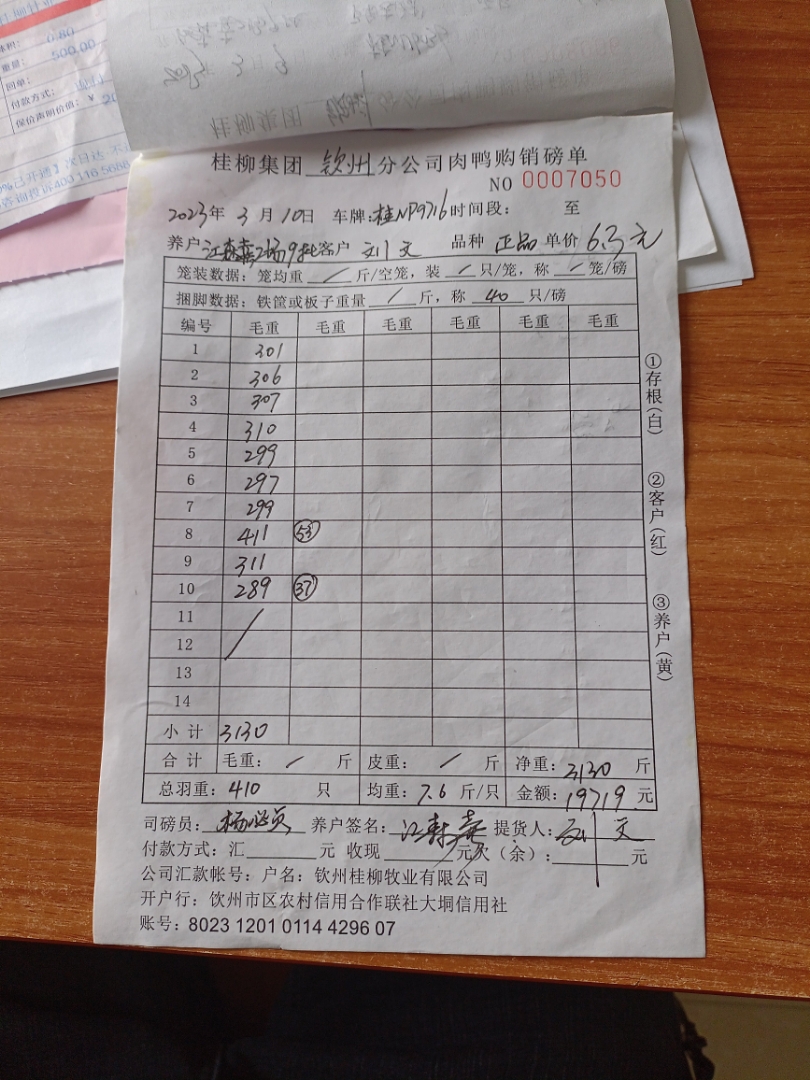 体积: 0.80
重量: 500.00
回单:
付款方式:
保价声明价值: ¥
桂柳集团 钦州 分公司肉鸭购销磅单
NO 0007050
2023年 3 月 10日 车牌: 桂NP9716 时间段: 至
养户 客户 刘文 品种 正品 单价 6.3元
笼装数据: 笼均重 / 斤/空笼, 装 / 只/笼, 称 / 笼/磅
捆脚数据: 铁筐或板子重量 / 斤, 称 40 只/磅
编号 毛重 毛重 毛重 毛重 毛重 毛重
1 301
2 306
3 307
4 310
5 299
6 297
7 299
8 411 53
9 311
10 289 37
11 /
12
13
14
小 计 3130
合 计 毛重: / 斤 皮重: / 斤 净重: 3130 斤
总羽重: 410 只 均重: 7.6 斤/只 金额: 19719 元
①存根(白)
②客户(红)
③养户(黄)
司磅员: 养户签名: 提货人: 刘文
付款方式: 汇 元 收现 元 欠(余): 元
公司汇款帐号: 户名: 钦州桂柳牧业有限公司
开户行: 钦州市区农村信用合作联社大垌信用社
账号: 8023 1201 0114 4296 07